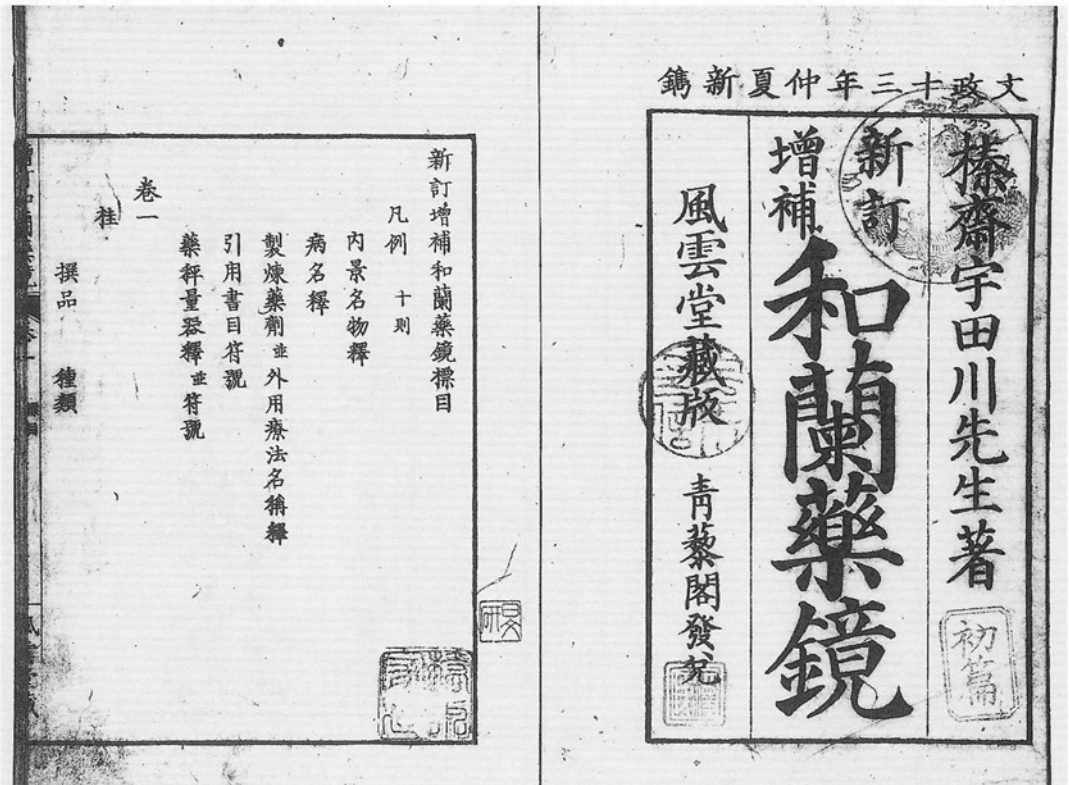 文政十三年仲夏新鐫
榛齋宇田川先生著
初篇
新訂
增補
和蘭藥鏡
風雲堂藏版
青藜閣發兌
新訂增補和蘭藥鏡標目
凡例 十則
内景名物釋
病名釋
製煉藥劑並外用療法名稱釋
引用書目符號
藥秤量器釋並符號
卷一
桂
撰品 種類